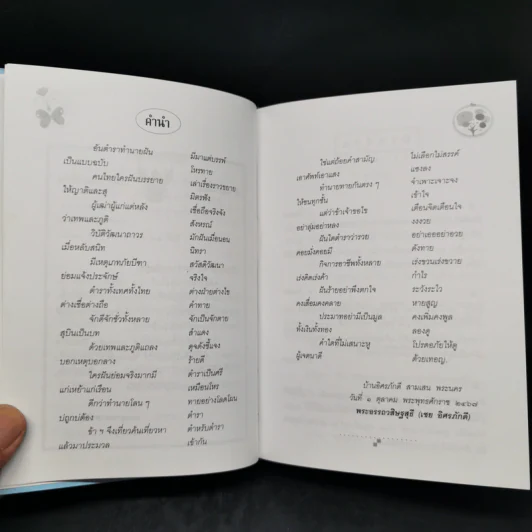 คำนำ
อันตำราทำนายฝัน มีมาแต่บรรพ์
เป็นแบบฉบับ โหรทาย
คนไทยใครฝันบรรยาย เล่าเรื่องราวขยาย
ให้ญาติและสุ มิตรฟัง
ผู้เฒ่าผู้แก่แต่หลัง เชื่อถือจริงจัง
ว่าเทพและภูติ สังหรณ์
วิปัติวัฒนาถาวร มักฝันเมื่อนอน
เมื่อหลับสนิท นิทรา
มีเหตุเภทภัยบีฑา สวัสดิวัฒนา
ย่อมแจ้งประจักษ์ จริงใจ
ตำราทั้งเทศทั้งไทย ต่างฝ่ายต่างใช
ต่างเชื่อต่างถือ คำทาย
จักดีจักชั่วทั้งหลาย จักเป็นจักตาย
สุบินเป็นบท สำแดง
ด้วยเทพและภูติแถลง ดุจดังชี้แจง
บอกเหตุบอกลาง ร้ายดี
ใครฝันย่อมจริงมากมี ตำราเป็นศรี
แก่เหย้าแก่เรือน เหมือนโหร
ดีกว่าทำนายโลน ๆ ทายอย่างโดดโผน
บ่ถูกบ่ต้อง ตำรา
ข้า ฯ จึงเที่ยวค้นเที่ยวหา ตำหรับตำรา
แล้วมาประมวล เข้ากัน
ใช่แต่ถ้อยคำสามัญ ไม่เลือกไม่สรรค์
เอาศัพท์เอาแสง แขงลง
ทำนายทายกันตรง ๆ จำเพาะเจาะจง
ให้ชนทุกชั้น เข้าใจ
แต่ว่าข้าเจ้าขอไข เตือนจิตเตือนใจ
อย่าลุ่มอย่าหลง งงงวย
ฝันใดตำราว่ารวย อย่าเออออย่าอวย
คอยมั่งคอยมี ดังทาย
กิจการอาชีพทั้งหลาย เร่งขวนเร่งขวาย
เร่งคิดเร่งค้า กำไร
ฝันร้ายอย่าพึงตกใจ ระวังระไว
คงเสื่อมคงคลาย หายสูญ
ประมาทอย่ามีเป็นมูล คงเพิ่มคงพูล
ทั้งเงินทั้งทอง ลองดู
คำใดที่ไม่เสนาะหู โปรดอภัยให้ตู
ผู้เจตนาดี ด้วยเทอญ.
บ้านอิศรภักดี สามเสน พระนคร
วันที่ ๑ ตุลาคม พระพุทธศักราช ๒๔๖๘
พระอรรถวสิษฐสุธี (เชย อิศรภักดี)